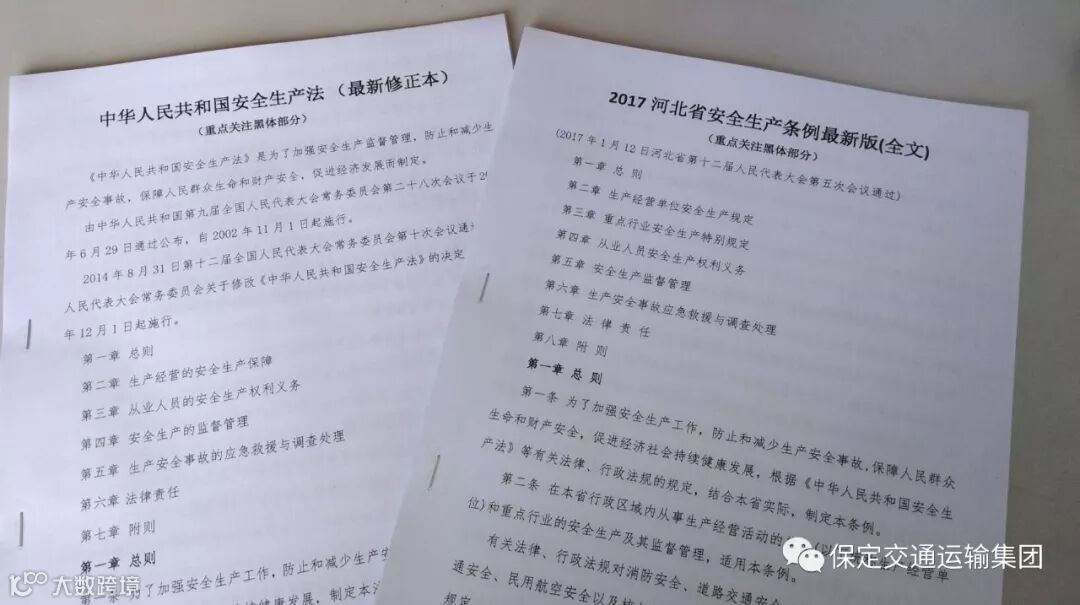 中华人民共和国安全生产法（最新修正本）
（重点关注黑体部分）
《中华人民共和国安全生产法》是为了加强安全生产监督管理，防止和减少生
产安全事故，保障人民群众生命和财产安全，促进经济发展而制定。
由中华人民共和国第九届全国人民代表大会常务委员会第二十八次会议于
年6月29日通过公布，自2002年11月1日起施行。
2014年8月31日第十二届全国人民代表大会常务委员会第十次会议通
人民代表大会常务委员会关于修改《中华人民共和国安全生产法》的决定
年12月1日起施行。
第一章 总则
第二章 生产经营的安全生产保障
第三章 从业人员的安全生产权利义务
第四章 安全生产的监督管理
第五章 生产安全事故的应急救援与调查处理
第六章 法律责任
第七章 附则
第一章 总则
第一条 为了加强安全生产工作，防止和减少生产安
持续健康发展，制定本法
2017河北省安全生产条例最新版(全文)
（重点关注黑体部分）
(2017年1月12日河北省第十二届人民代表大会第五次会议通过)
第一章 总 则
第二章 生产经营单位安全生产规定
第三章 重点行业安全生产特别规定
第四章 从业人员安全生产权利义务
第五章 安全生产监督管理
第六章 生产安全事故应急救援与调查处理
第七章 法 律 责 任
第八章 附 则
第一章 总 则
第一条 为了加强安全生产工作，防止和减少生产安全事故，保障人民群众
生命和财产安全，促进经济社会持续健康发展，根据《中华人民共和国安全生
产法》等有关法律、行政法规的规定，结合本省实际，制定本条例。
第二条 在本省行政区域内从事生产经营活动的
位)和重点行业的安全生产及其监督管理，适用本条例。
有关法律、行政法规对消防安全、道路交通安全
通安全、民用航空安全以及核
规定
保定交通运输集团
大数跨境